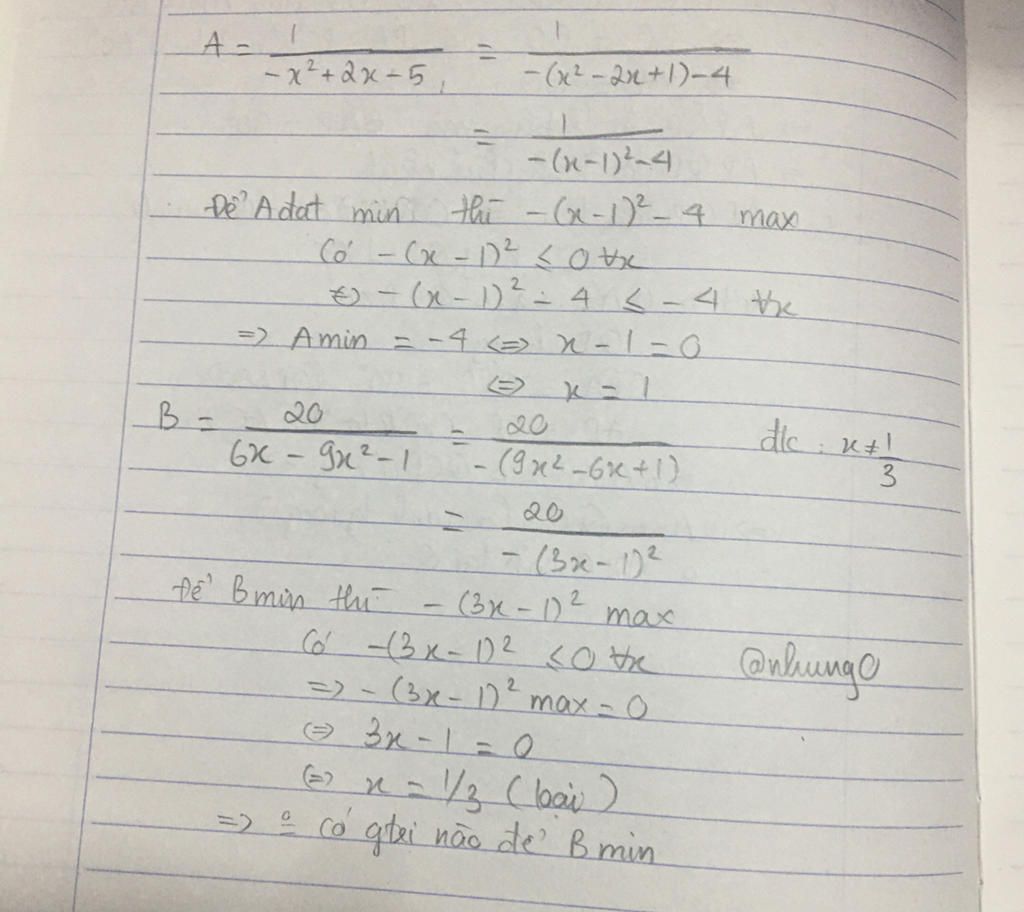 A = 1/(-x² + 2x - 5) = 1/(-(x² - 2x + 1) - 4)
= 1/(-(x-1)² - 4)
Để A đạt min thì -(x-1)² - 4 max
Có -(x-1)² ≤ 0 ∀x
⇔ -(x-1)² - 4 ≤ -4 ∀x
=> Amin = -4 <=> x - 1 = 0
<=> x = 1
B = 20/(6x - 9x² - 1) = 20/(-(9x² - 6x + 1)) đk : x ≠ 1/3
= 20/(-(3x-1)²)
Để B min thì -(3x-1)² max
Có -(3x-1)² ≤ 0 ∀x @nhung0
=> -(3x-1)² max = 0
<=> 3x - 1 = 0
<=> x = 1/3 (loại)
=> có gtrị nào để B min